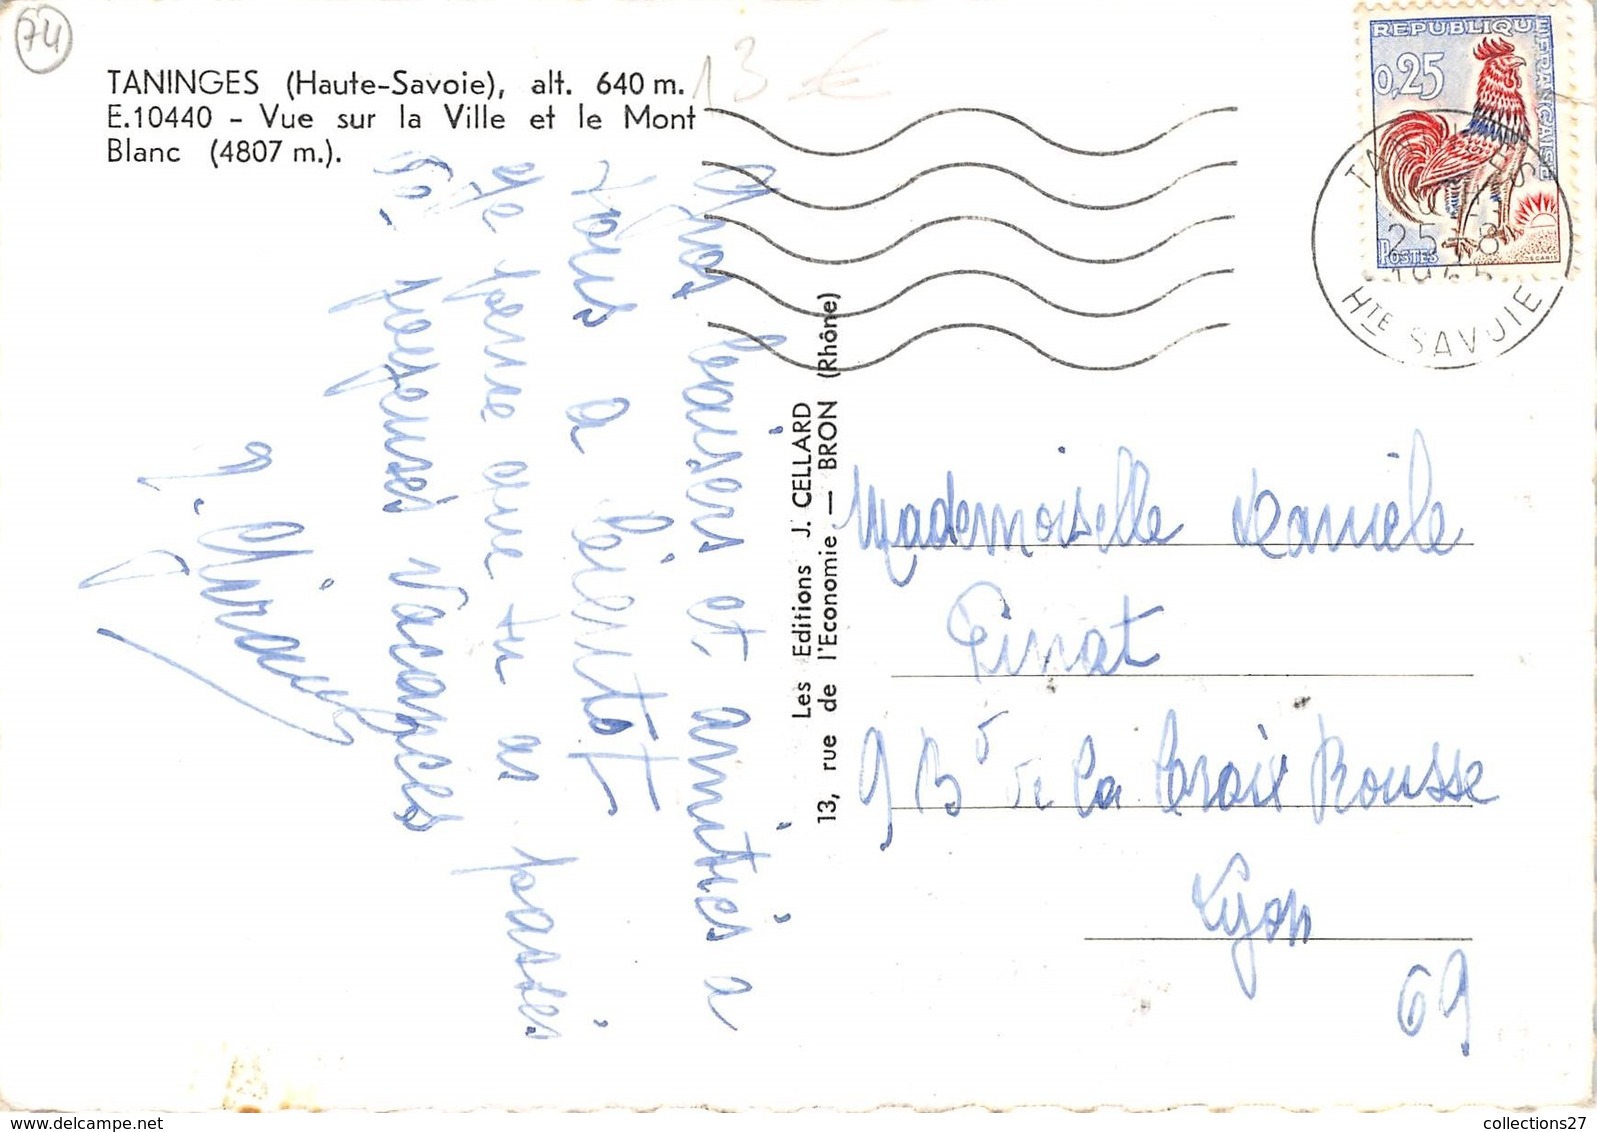 74
TANINGES (Haute-Savoie), alt. 640 m.
E.10440 - Vue sur la Ville et le Mont
Blanc (4807 m.).
13 €
REPUBLIQUE FRANÇAISE
0,25
POSTES
25 - 8
HTE SAVOIE
Gros baisers et amitiés a
vous a bientot
Je pense que tu as passés
de joyeuses vacances
Les Editions J. CELLARD
13, rue de l'Economie — BRON (Rhône)
Mademoiselle Danièle
Pinat
9 Bd de la Croix Rousse
Lyon
69
collections27